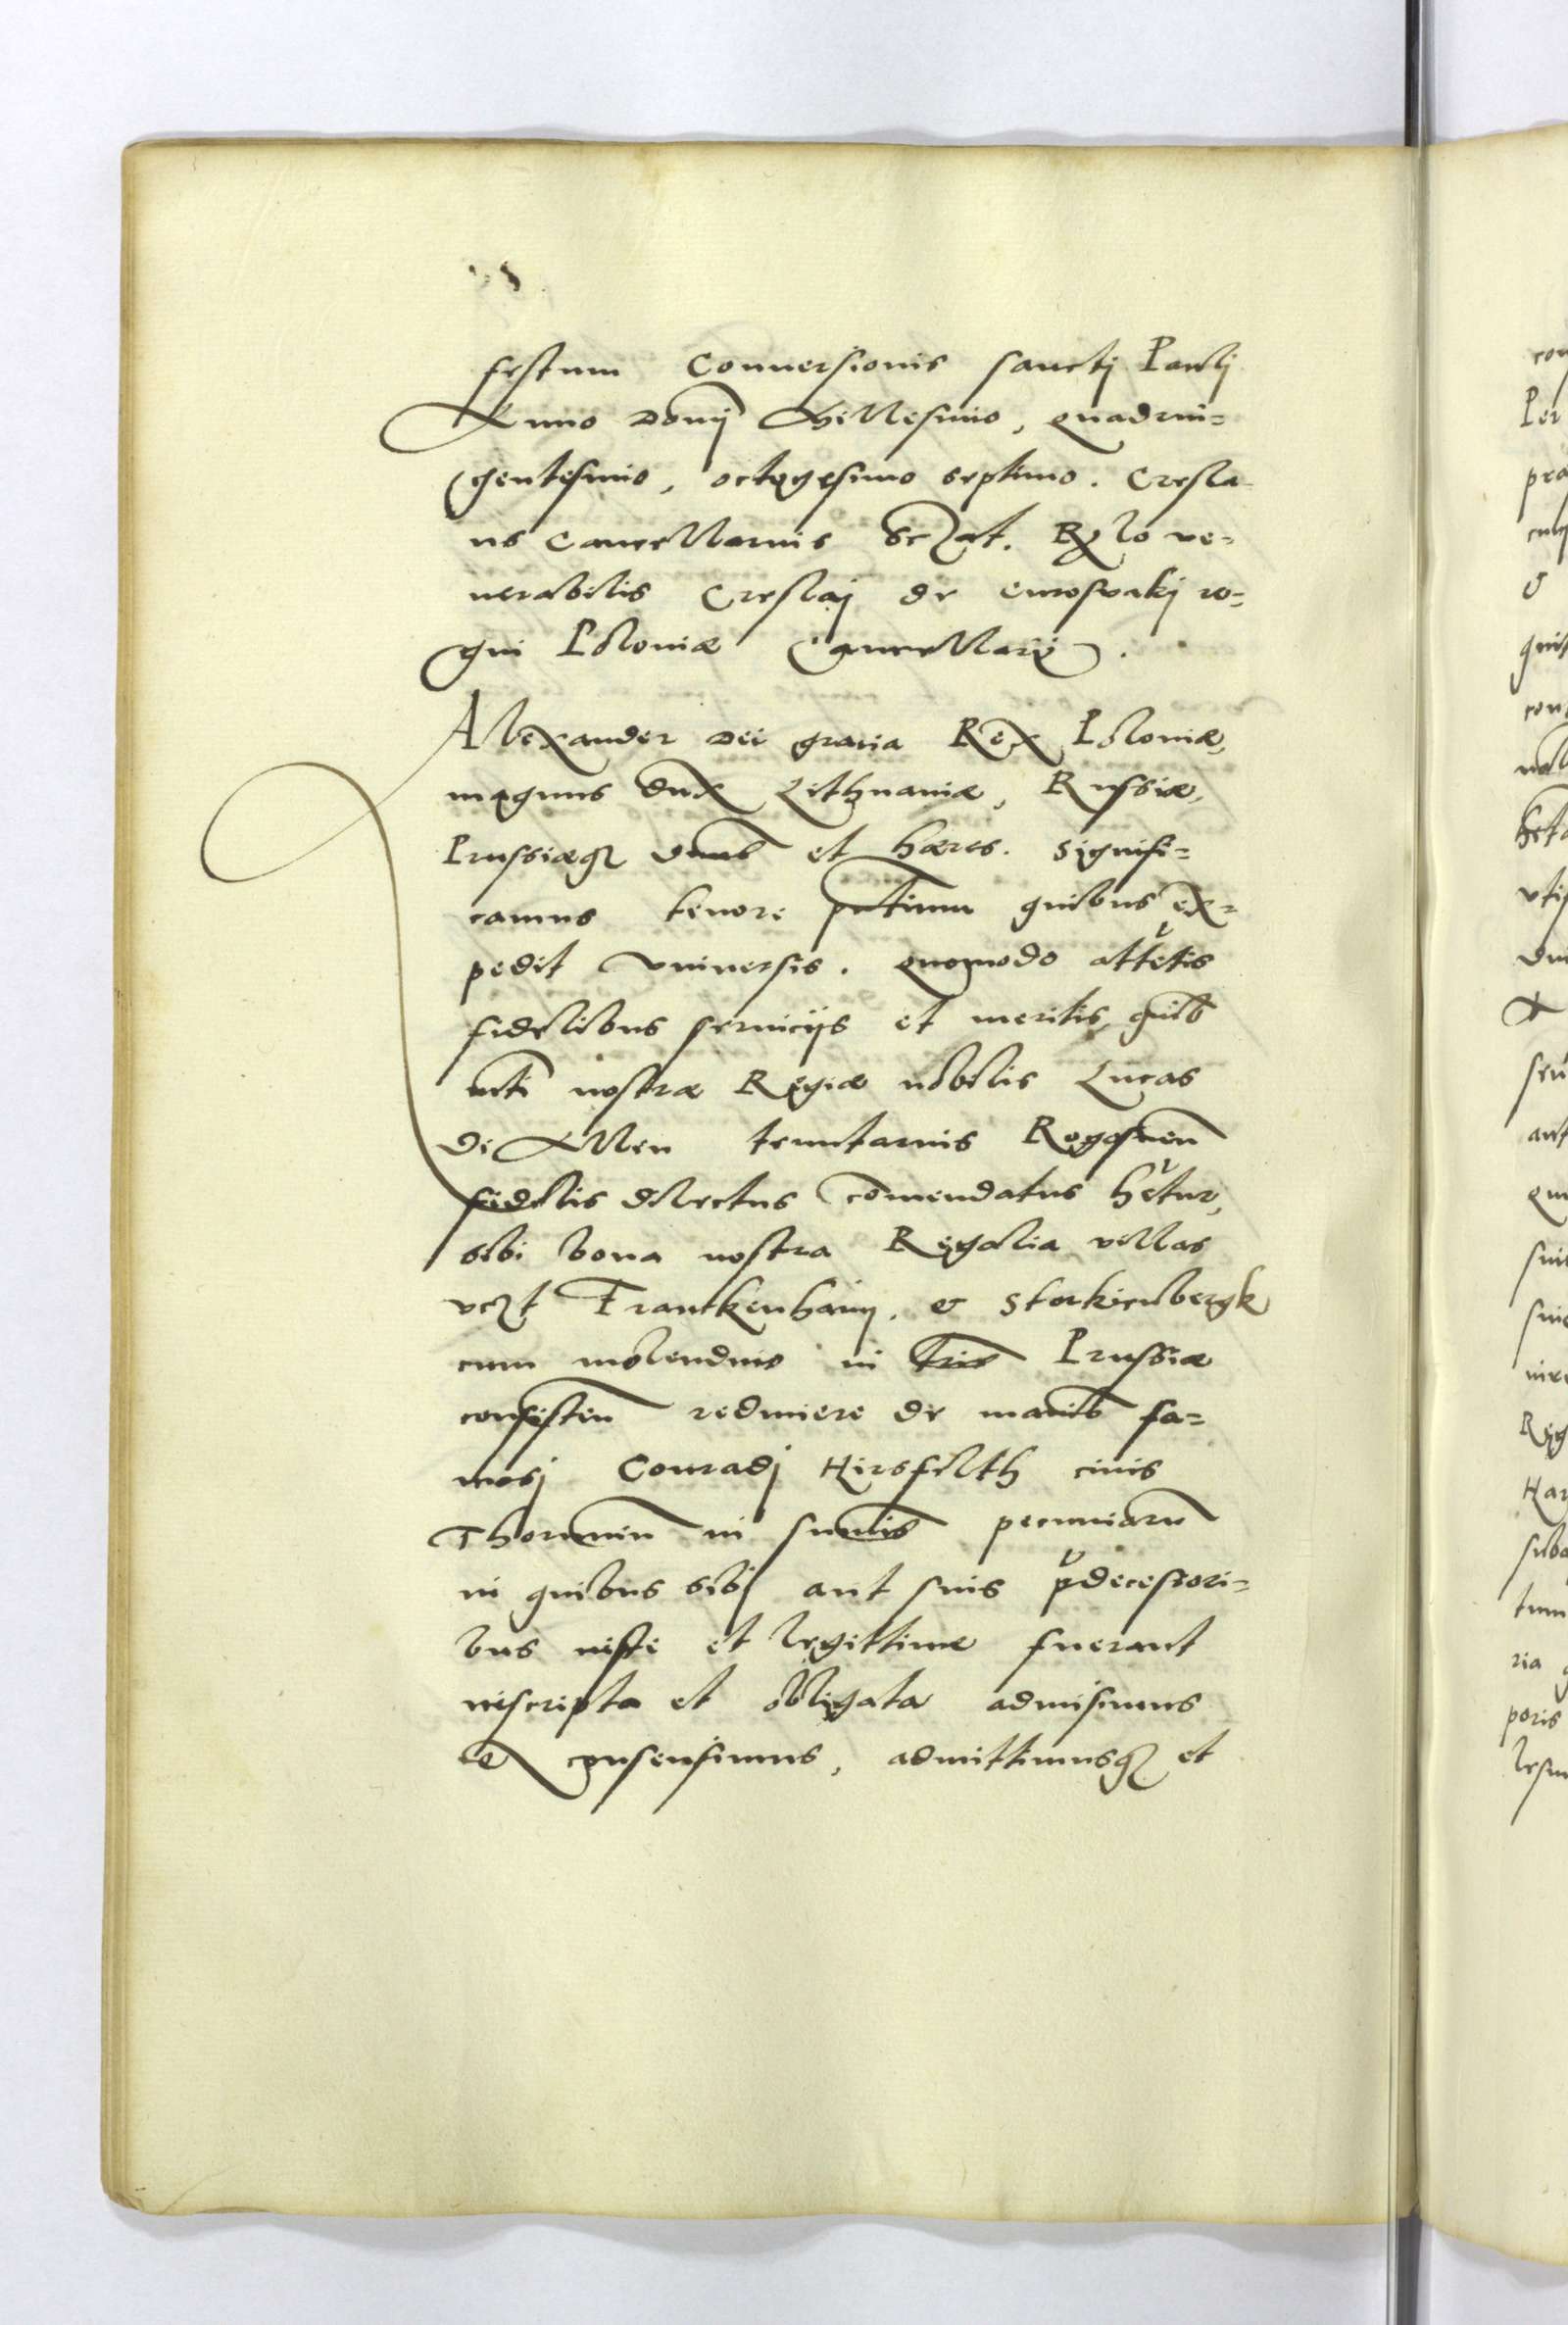 festum Conuersionis sanctj Paulj
Anno Domj Millesimo, quadrin=
gentesimo, octogesimo septimo. Cresla
us Cancellarius Sczat. Rºlo ve=
nerabilis Creslaj de Curoswakj re=
gni Poloniæ Cancellarij.
Alexander Dei gratia Rex Poloniæ,
magnus dux Lithuaniæ, Russiæ,
Prussiæqʒ dnus et hæres. Signifi=
camus tenore pntium quibus ex=
pedit vniuersis. Quomodo attētis
fidelibus seruicijs et meritis, quib
mti nostræ Regiæ nobilis Lucas
de Allen tenutarius Rogosnen
fidelis dilectus comendatus hētur,
sibi bona nostra Regalia villas
vczt Franckenhaijn. & Storkienbergk
cum molendino in Tris Prussiæ
consisten redimere de manib fa=
mosj Conradj Hirsfelth ciuis
Thorunen in sumis pecuniarū
in quibus sibj aut suis pdecessori=
bus iuste et legittime fuerant
inscripta et obligata admisimus
et consensimus, admittimusqʒ et